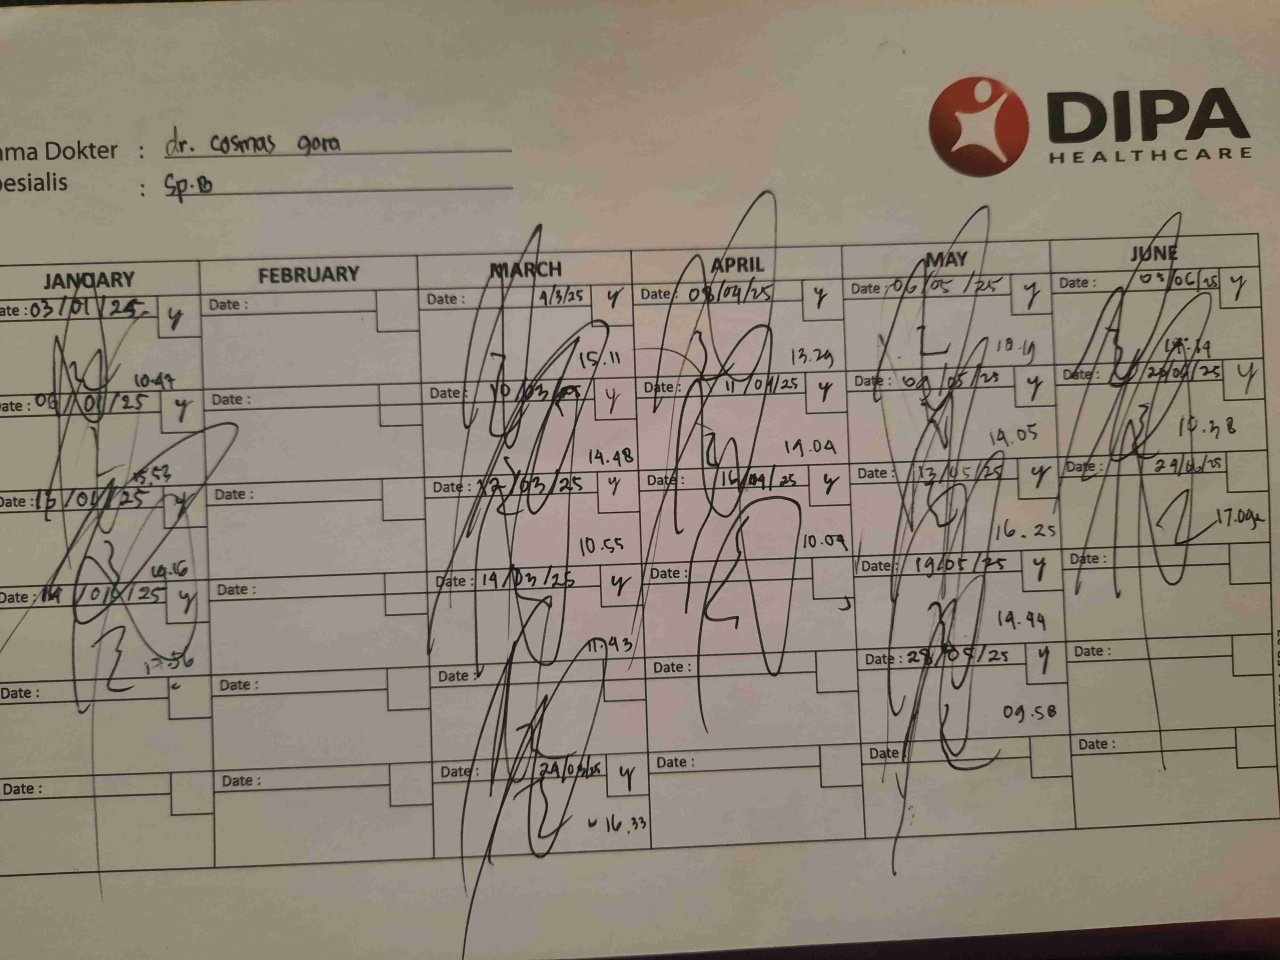 DIPA
HEALTHCARE
ama Dokter : dr. cosmas gora
esialis : Sp.B
JANUARY FEBRUARY MARCH APRIL MAY JUNE
ate: 03/01/25 y Date : Date : 4/3/25 y Date : 08/04/25 y Date : 06/05/25 y Date : 03/06/25 y
10.47 15.11 13.29 18.19
ate: 06/01/25 y Date : Date : 10/03/25 y Date : 11/04/25 y Date : 09/05/25 y Date : 20/06/25 y
15.53 14.48 19.04 14.05 10.38
Date : 13/01/25 y Date : Date : 12/03/25 y Date : 16/04/25 y Date : 13/05/25 y Date : 24/06/25
19.16 10.55 10.09 16.25 17.09
Date : /25 y Date : Date : 19/03/25 y Date : Date : 19/05/25 y Date :
17.56 11.43 14.44
Date : Date : Date : Date : Date : 28/05/25 y Date :
09.58
Date : Date : Date : 24/03/25 y Date : Date : Date :
16.33